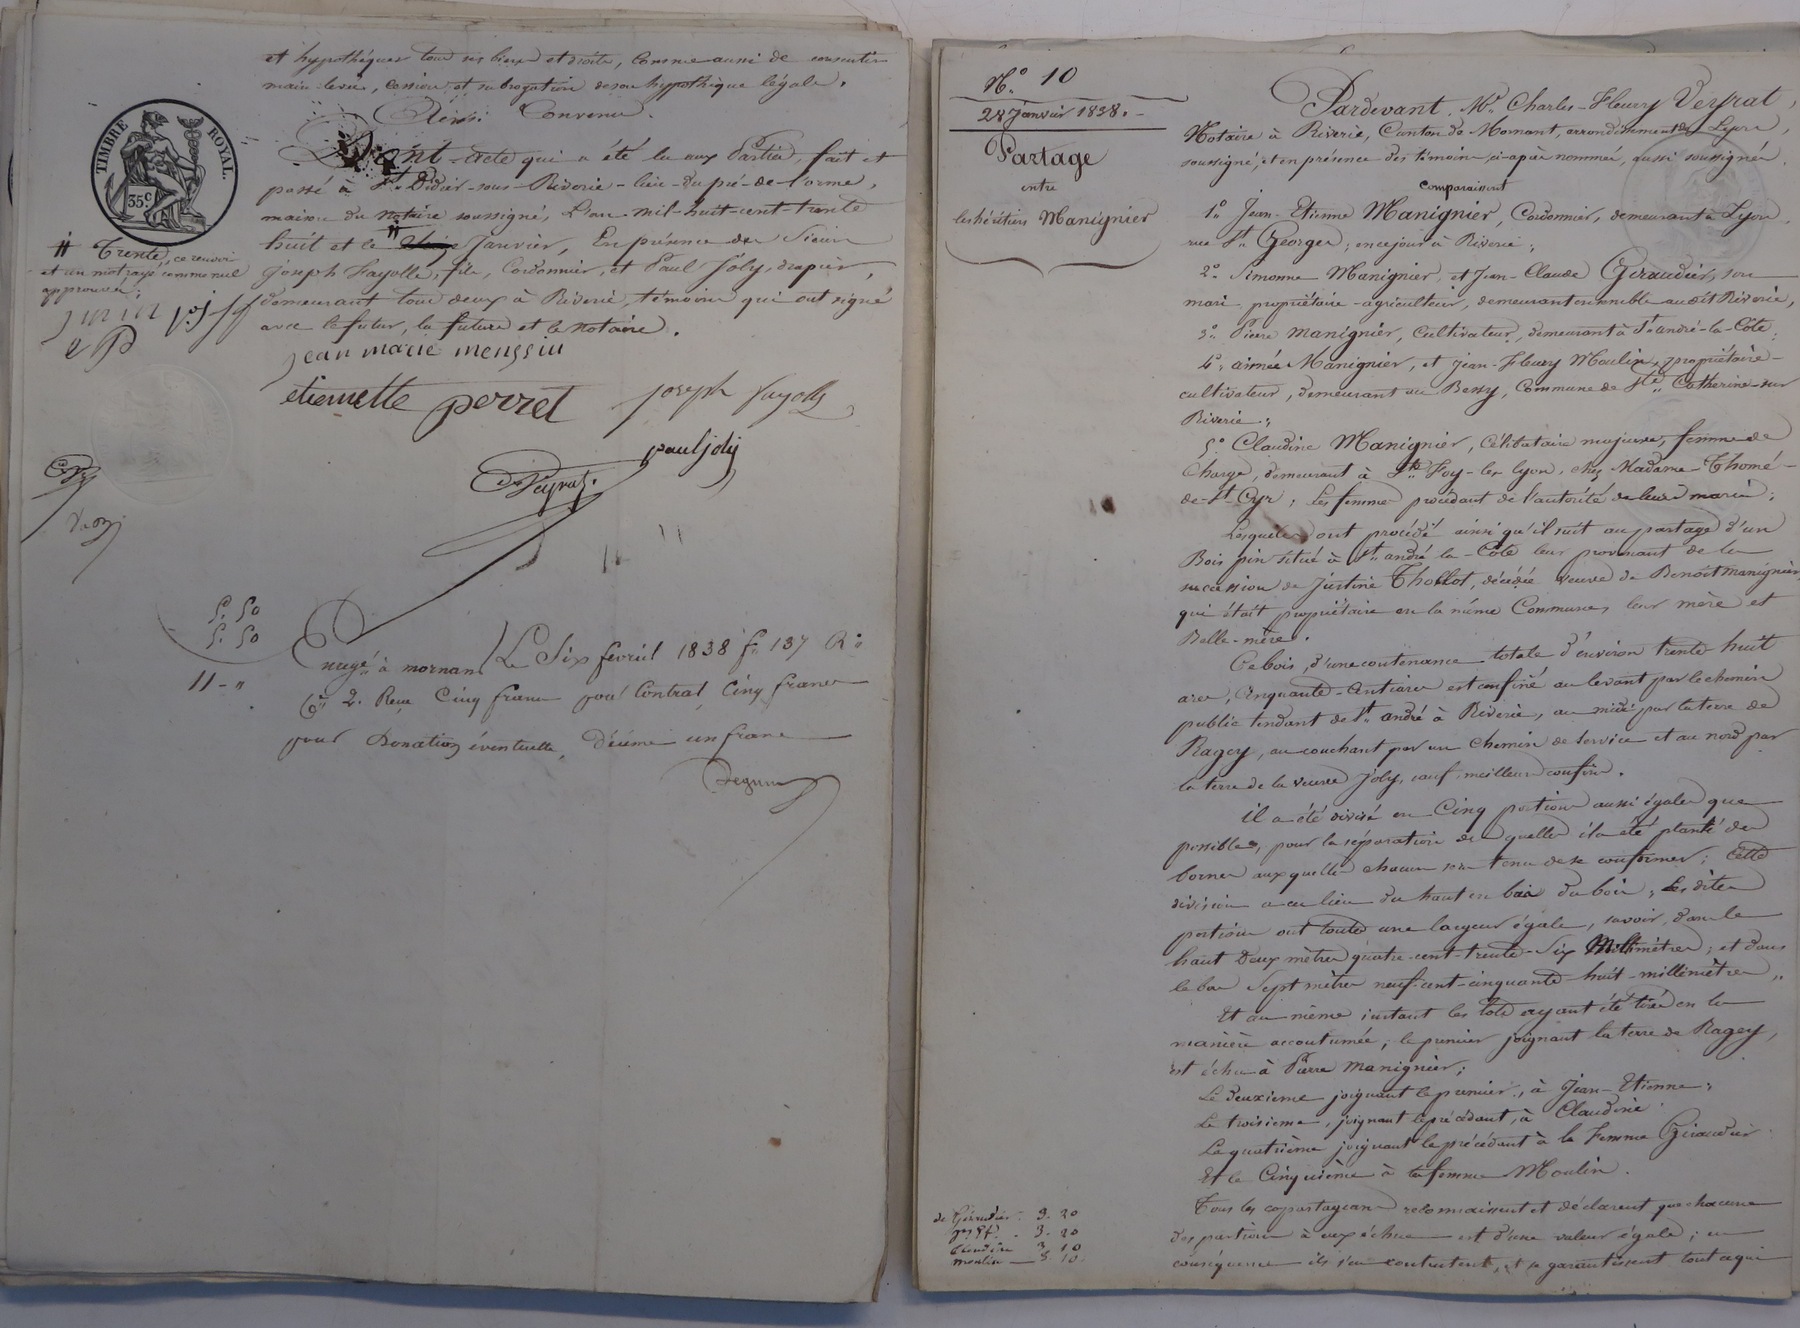 et hypothéquer tous ses biens et droits, comme aussi de consentir
main-levée, cession et subrogation de son hypothèque légale.
Ainsi Convenu.
TIMBRE ROYAL.
35c
Dont-acte qui a été lu aux Parties, fait et
passé à St. Didier-sous-Riverie-lieu-du-pré-de-l'orme,
maison du notaire soussigné, L'an mil-huit-cent-trente
huit et le Janvier, En présence des Sieurs
Joseph Fayolle, fils, Cordonnier, et Paul Joly, drapier,
demeurant tous deux à Riverie, témoins qui ont signé
avec le futur, la future et le notaire.
# Trente, ce renvoi
et un mot rayé comme nul
approuvés;
jmm pj jf
ep
jean marie
etiennette perret joseph fayolle
paul joly
Veyrat.
5. 50
5. 50
11 - "
Enregé. à mornant Le Six février 1838 fo. 137 Ro.
Ce. 2. Reçu Cinq francs pour Contrat, Cinq francs
pour Donation éventuelle, Décime un franc
No. 10
28 Janvier 1838.
Partage
entre
les héritiers Manignier
Pardevant Me. Charles-Fleury Veyrat,
Notaire à Riverie, Canton de Mornant, arrondissement de Lyon,
soussigné, et en présence des témoins ci-après nommés, aussi soussignés.
Comparaissent
1o. Jean-Etienne Manignier, Cordonnier, demeurant à Lyon,
rue St. Georges; en ce jour à Riverie;
2o. Simonne Manignier, et Jean-Claude Giraudier, son
mari, propriétaire-agriculteur, demeurant ensemble audit Riverie,
3o. Pierre Manignier, Cultivateur, demeurant à St andré-la-Côte;
4o, aimée Manignier, et Jean-Fleury Moulin, propriétaire-
cultivateur, demeurant au Bessy, Commune de Ste. Catherine-sur
Riverie;
5o Claudine Manignier, Célibataire majeure, femme de
Charge, demeurant à Ste Foy-les-lyon, chez Madame-Thomé-
de-St-Cyr; les femmes procédant de l'autorité de leurs maris;
Lesquels ont procédé ainsi qu'il suit au partage d'un
Bois pin situé à St. andré la-Côte leur provenant de la
succession de Justine Thollot, décédée veuve de Benoît Manignier,
qui était propriétaire en la même Commune, leur mère et
Belle-mère.
Ce bois, d'une contenance totale d'environ trente huit
ares, Cinquante-Centiares est confiné au levant par le chemin
public tendant de St. andré à Riverie, au midi par la terre de
Ragey, au couchant par un chemin de service et au nord par
la terre de la veuve Joly, sauf meilleurs confins.
il a été divisé en Cinq portions aussi égales que
possible, pour la séparation desquelles il a été planté des
bornes auxquelles chacun sera tenu de se conformer; Cette
division a eu lieu du haut en bas du bois; Les dites
portions ont toutes une largeur égale, savoir, dans le
haut Deux mètres quatre-cent-trente-Six Millimètres; et dans
le bas Sept mètres neuf-cent-cinquante huit-millimètres.
Et au même instant les lots ayant été tirés en la
manière accoutumée; le premier joignant la terre de Ragey,
est échu à Pierre Manignier;
Le deuxième joignant le premier, à Jean-Etienne;
Le troisième, joignant le précédant, à Claudine
Le quatrième joignant le précédant à la Femme Giraudier
Et le Cinquième à la femme Moulin.
Tous les copartageans reconnaissent et déclarent que chacune
des portions à eux échue est d'une valeur égale; en
conséquence ils s'en contentent, et se garantissent tout ce qui
de Giraudier 3. 20
3. 20
Claudine 3 10
moulin 3. 10.